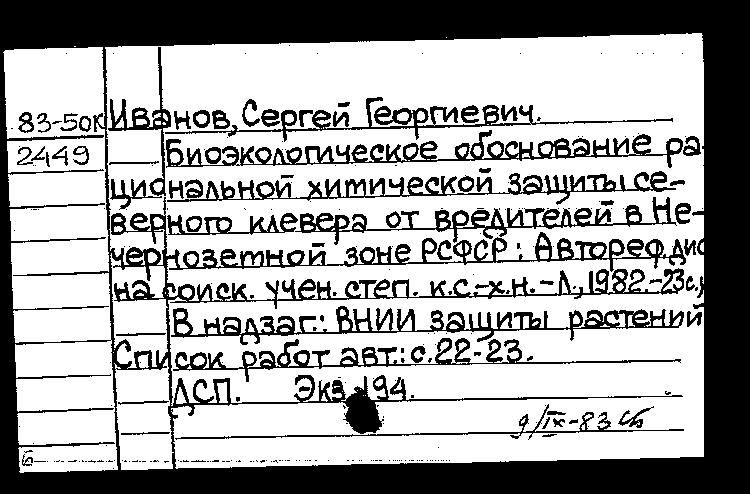 83-50к Иванов, Сергей Георгиевич.
2449 Биоэкологическое обоснование ра
циональной химической защиты се-
верного клевера от вредителей в Не-
чернозетной зоне РСФСР: Автореф. дис
на соиск. учен. степ. к.с.-х.н. - Л., 1982.-23с.;
В надзаг.: ВНИИ защиты растений
Список работ авт.: с.22-23.
ДСП. Экз 194.
9/IX-83
6